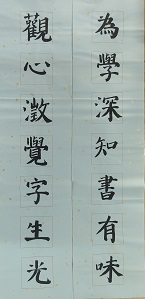 為學深知書有味
觀心澂覺字生光